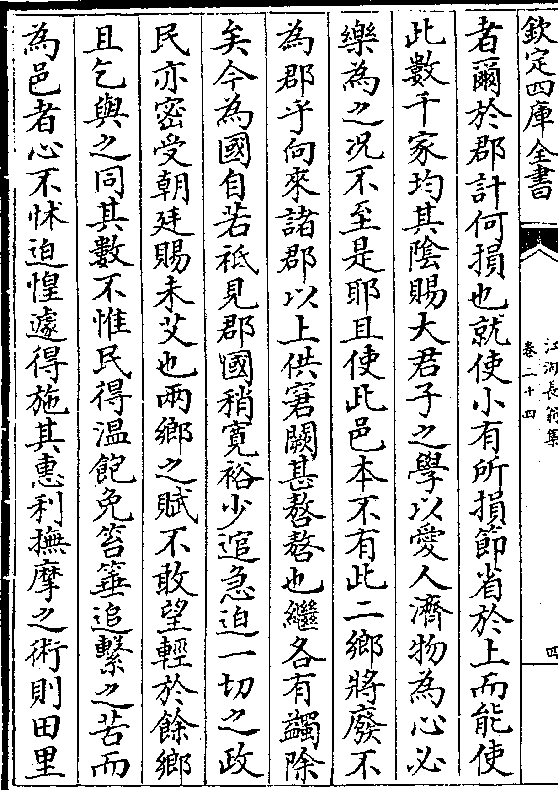 欽定四庫全書
江湖長翁集
卷二十四
四
者爾於郡計何損也就使小有所損節省於上而能使
此數千家均其陰賜大君子之學以愛人濟物為心必
樂為之况不至是耶且使此邑本不有此二鄉將廢不
為郡乎向來諸郡以上供窘闕甚嗸嗸也繼各有蠲除
矣今為國自若祗見郡國稍寛裕少逭急迫一切之政
民亦密受朝廷賜未艾也兩鄉之賦不敢望輕於餘鄉
且乞與之同其數不惟民得温飽免笞箠追繫之苦而
為邑者心不怵迫惶遽得施其惠利撫摩之術則田里